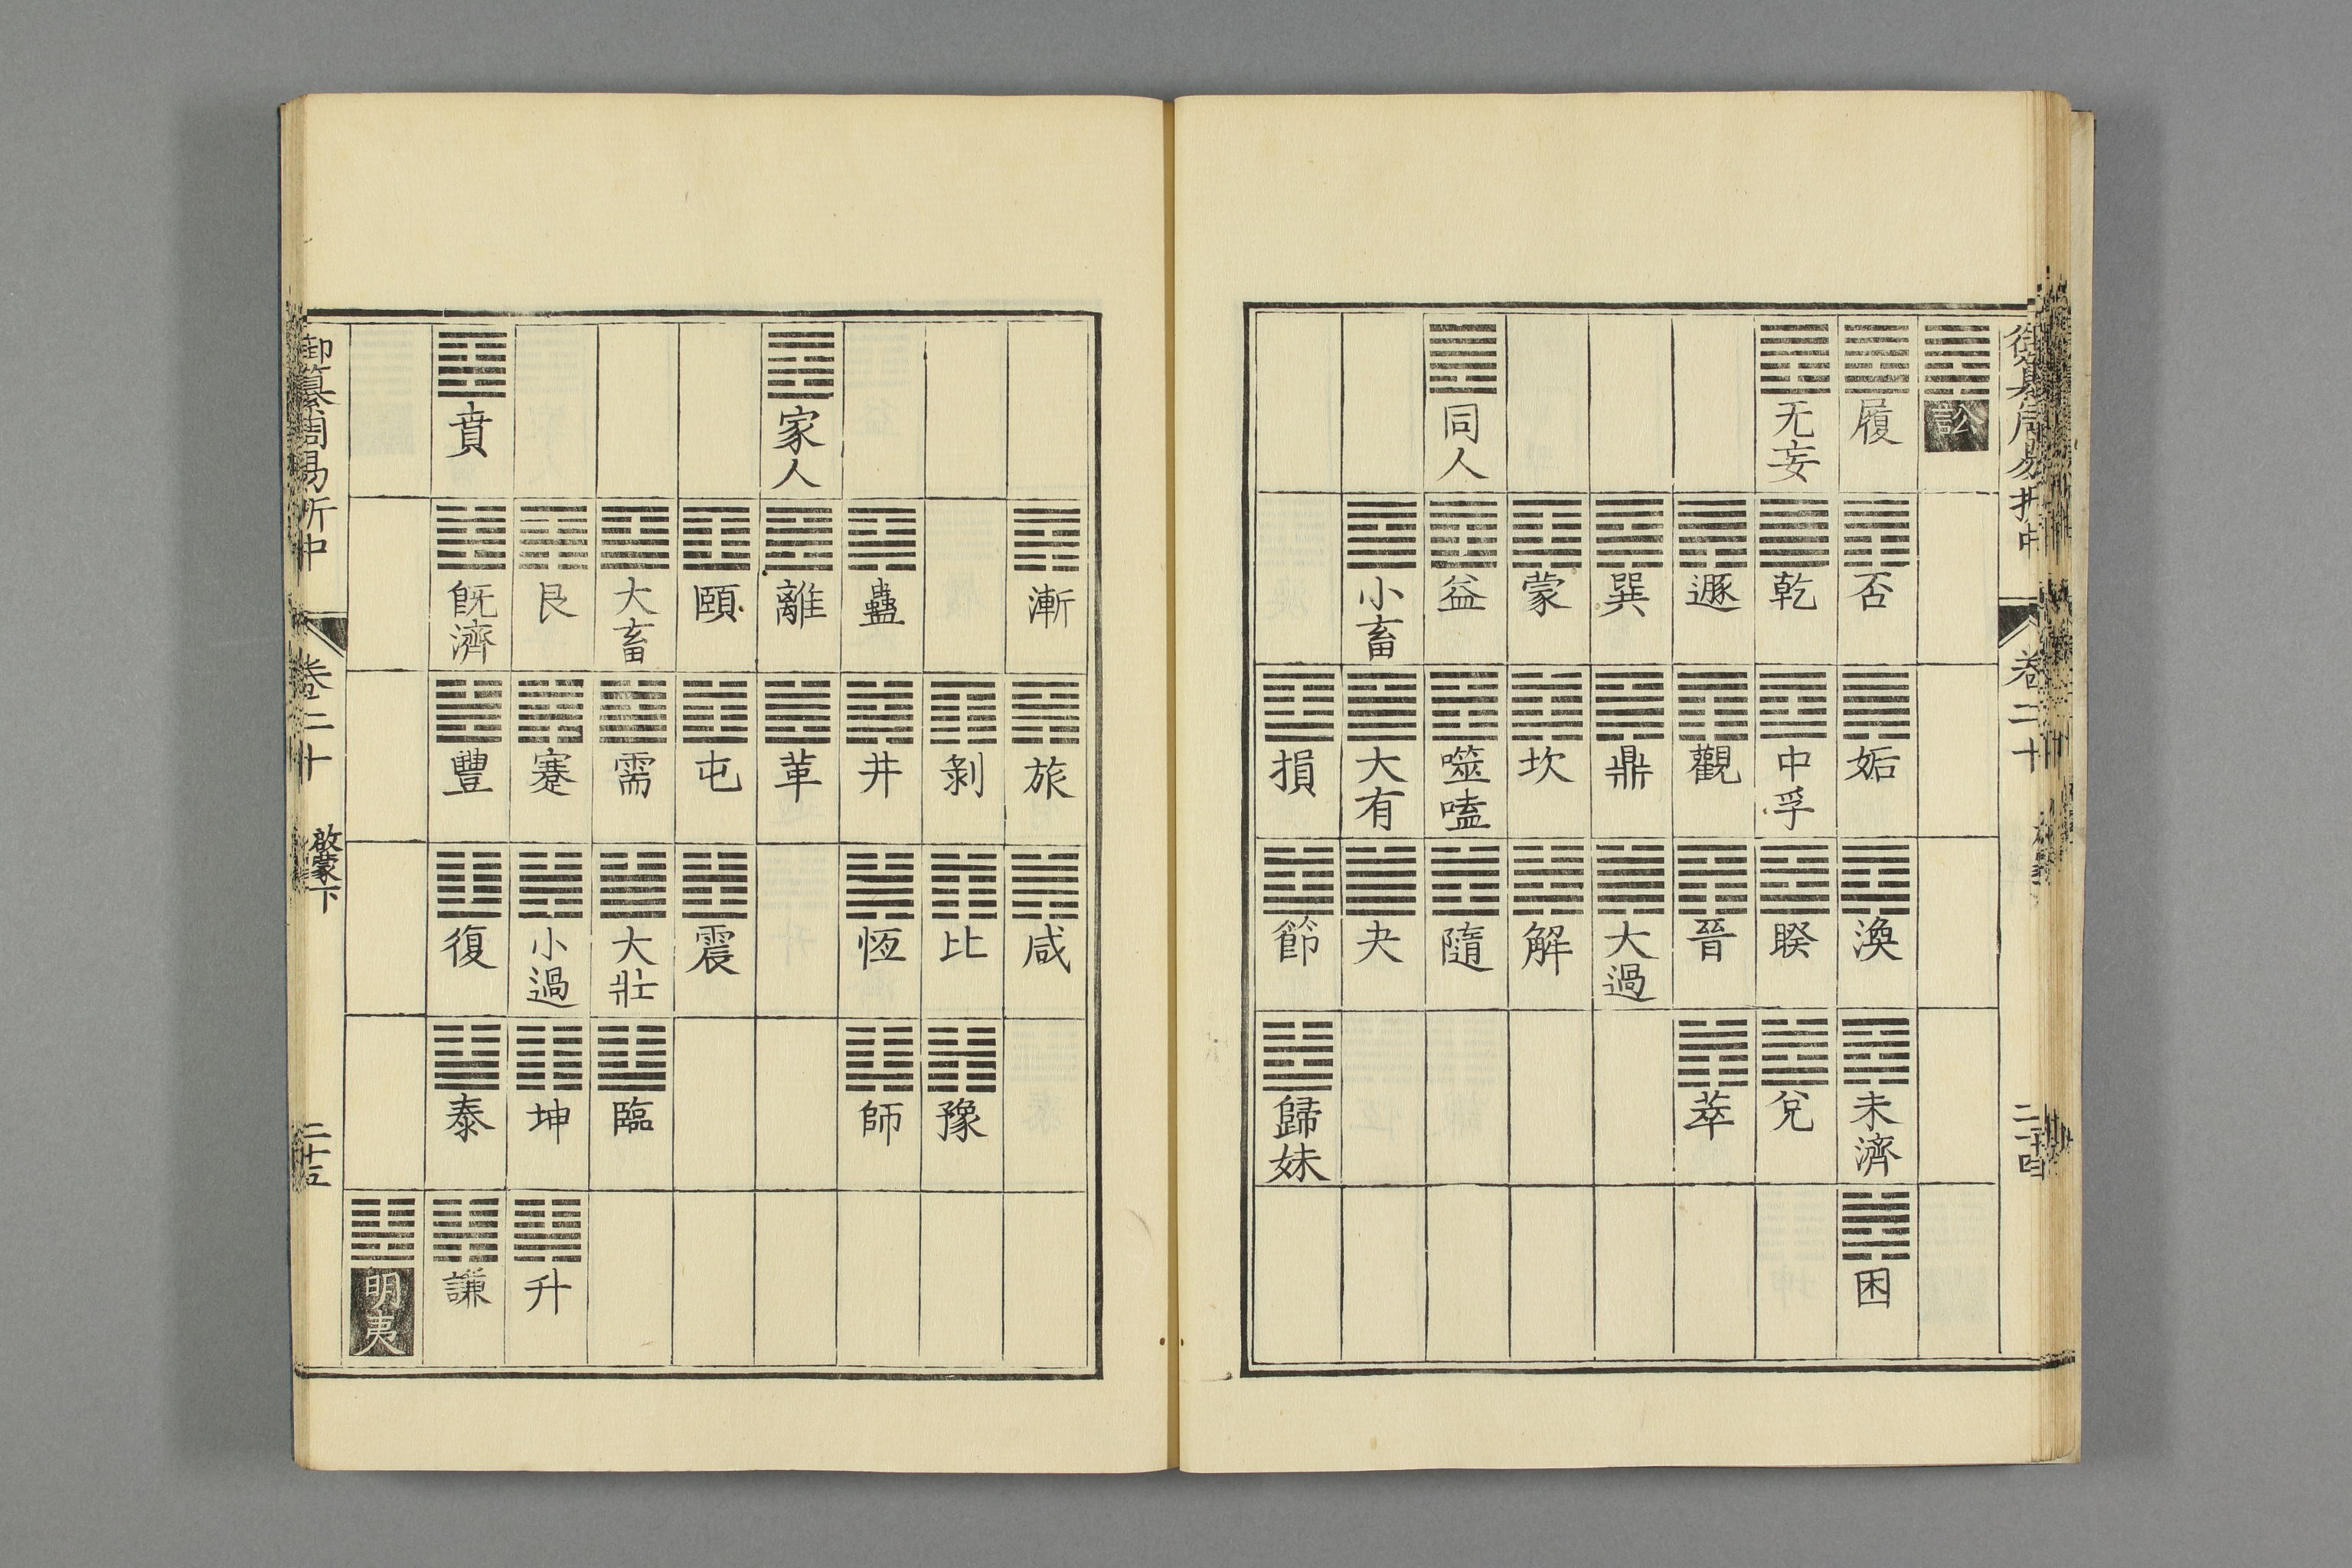 御纂周易折中 卷二十 二十四
訟
履 否 姤 渙 未濟 困
无妄 乾 中孚 睽 兌
遯 觀 晉 萃
巽 鼎 大過
蒙 坎 解
同人 益 噬嗑 隨
小畜 大有 夬
損 節 歸妹
漸 旅 咸
剝 比 豫
蠱 井 恆 師
家人 離 革
頤 屯 震
大畜 需 大壯 臨
艮 蹇 小過 坤 升
賁 旣濟 豐 復 泰 謙
明夷
御纂周易折中 卷二十 啟蒙下 二十五